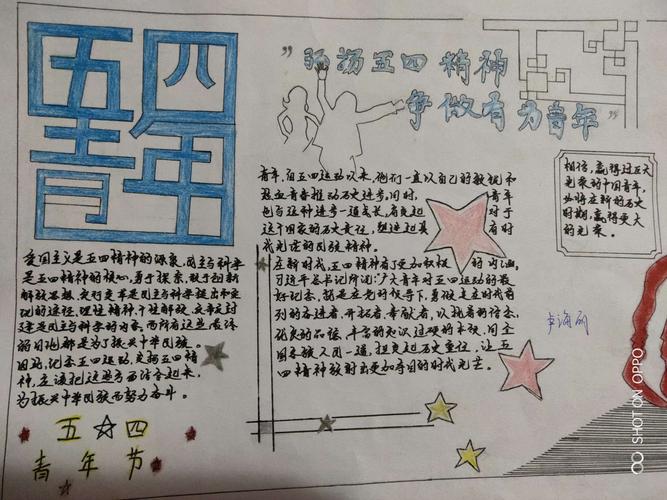 五四
青年
"弘扬五四精神
争做有为青年"
爱国主义是五四精神的源泉,民主与科学
是五四精神的核心,勇于探索、敢于创新
解放思想、实行变革是民主与科学提出和实
现的途径,理性精神、个性解放、反帝反封
建是民主与科学的内容,而所有这些最终
的目的都是为了振兴中华民族。
因此,纪念五四运动,发扬五四精
神,应该把这些方面结合起来,
为振兴中华民族而努力奋斗。
五四
青年节
青年,自五四运动以来,他们一直以自己的敏锐和
热血青春推动历史进步,同时,青年
也与这种进步一道成长,肩负起对于
这个国家的历史责任,塑造起具有时
代光芒的民族精神。
在新时代,五四精神有了更加积极的内涵,
习近平总书记所说:"广大青年对五四运动的最
好纪念,就是在党的领导下,勇做走在时代前
列的奋进者、开拓者、奉献者,以执着的信念、
优良的品德、丰富的知识、过硬的本领,同全
国各族人民一道,担负起历史重任,让五
四精神放射出更加夺目的时代光芒。
相信,赢得过五大
光荣的中国青年,
必将在新的历史
时期,赢得更大
的光荣。
卢海丽
SHOT ON OPPO